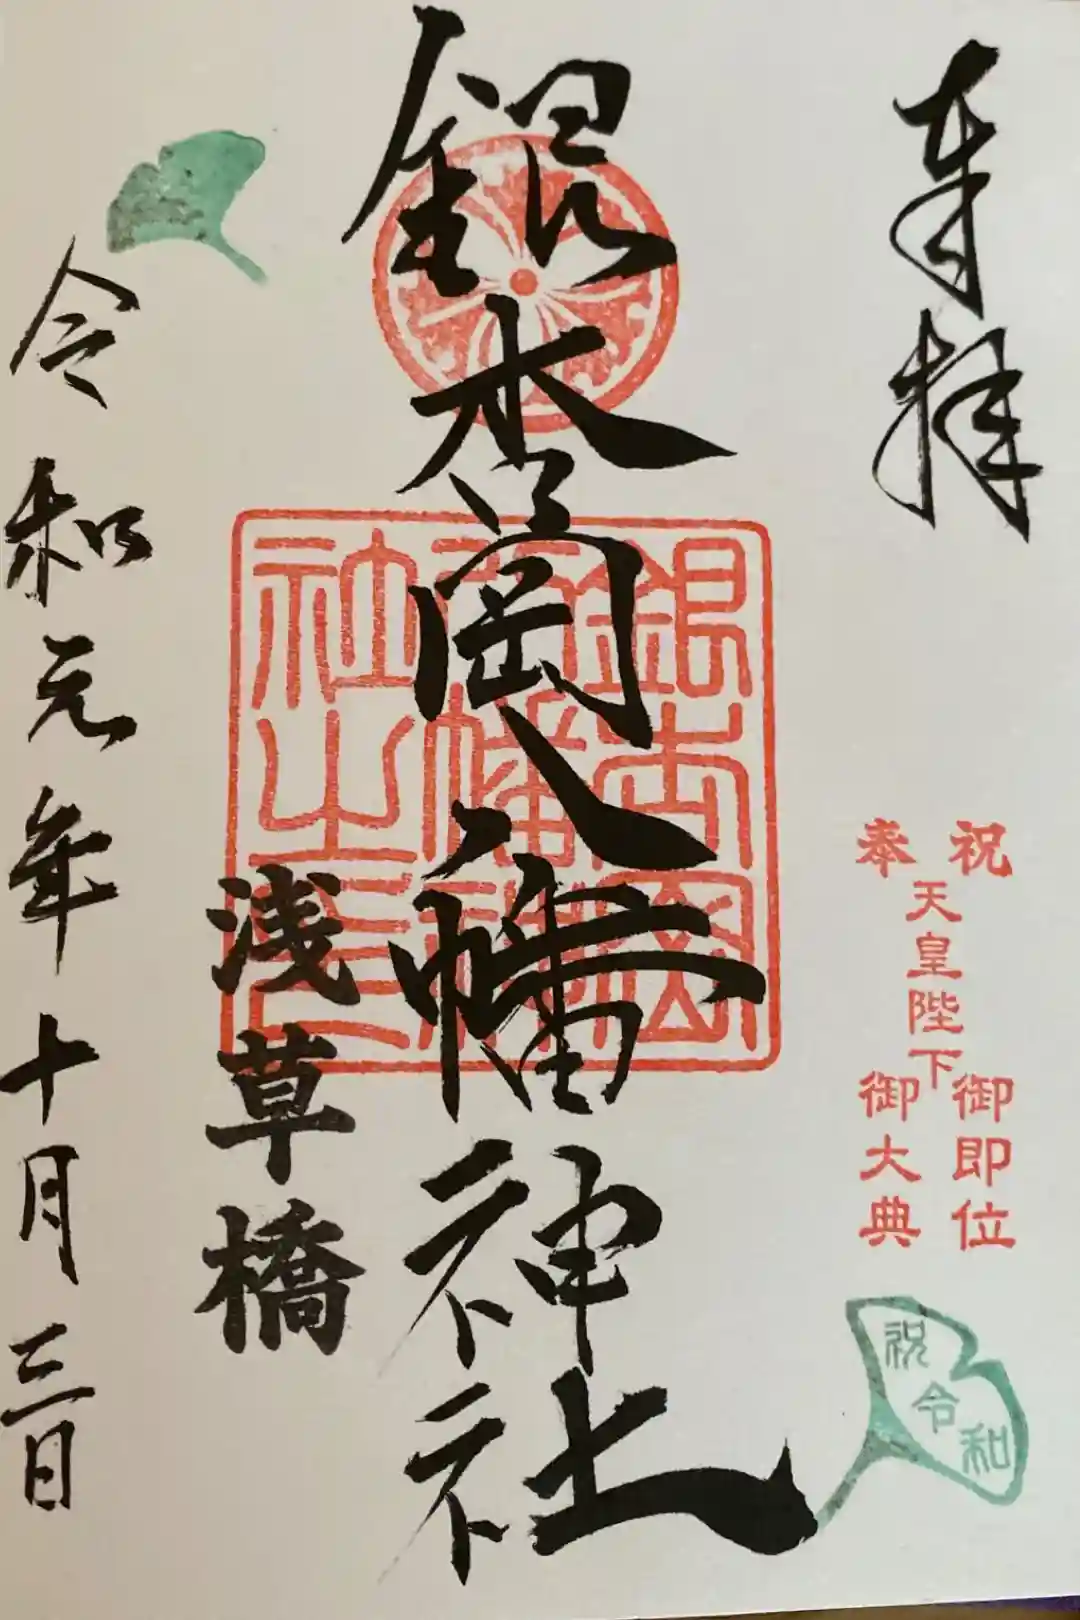 奉拝
祝
奉
天皇陛下
御即位
御大典
祝
令
和
銀杏岡八幡神社
銀杏岡
八幡神
社之印
浅草橋
令和元年十月三日